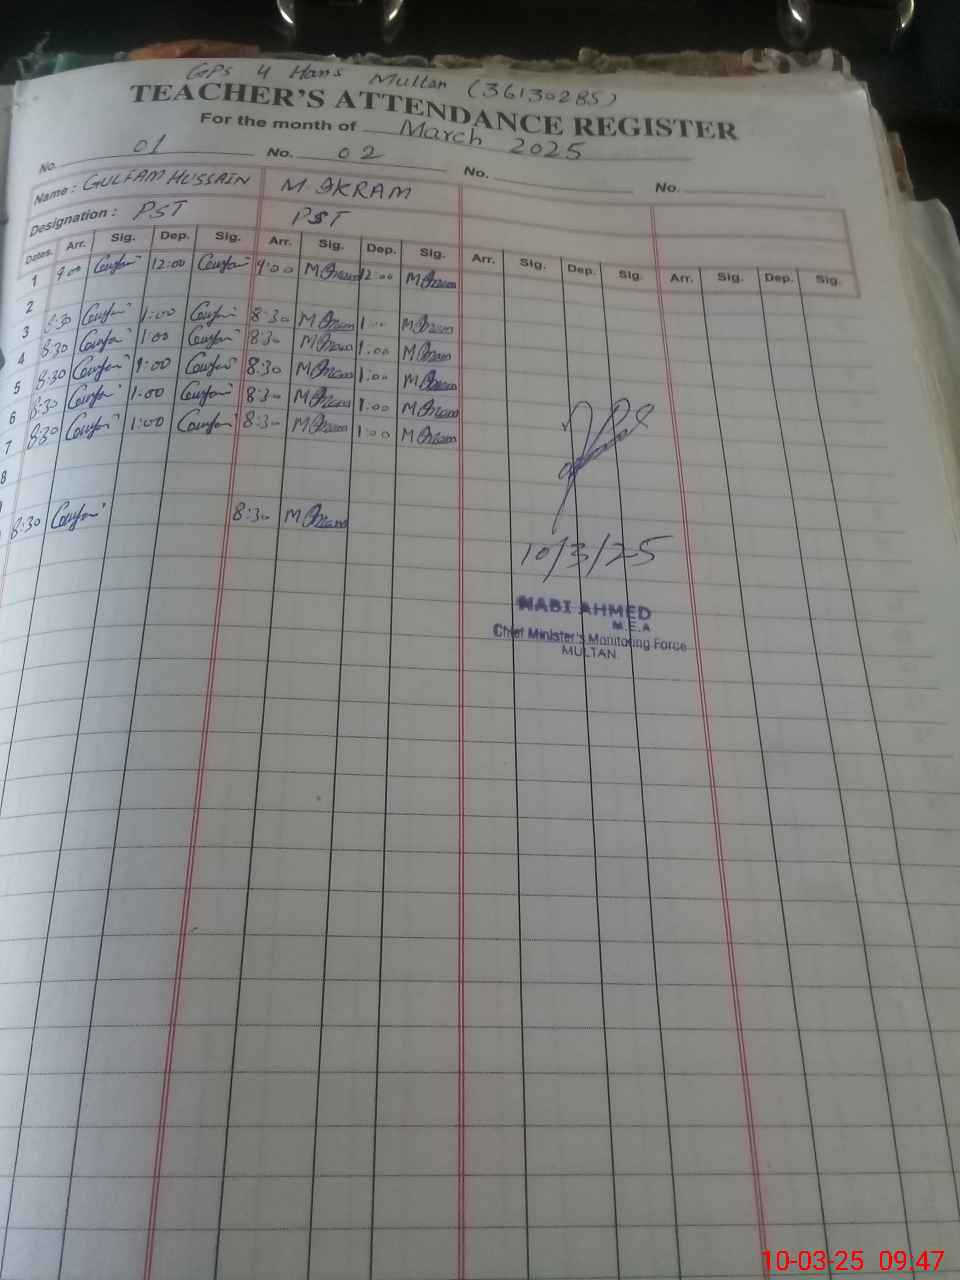 GPS 4 Hans Multan (36130285)
TEACHER'S ATTENDANCE REGISTER
For the month of March 2025
No. 01 No. 02 No. No.
Name : GULFAM HUSSAIN M IKRAM
Designation : PST PST
Dates. Arr. Sig. Dep. Sig. Arr. Sig. Dep. Sig. Arr. Sig. Dep. Sig. Arr. Sig. Dep. Sig.
1 9.00 12:00 9:00 12:00
2
3 8:30 1:00 8:30 1:00
4 8:30 1:00 8:30 1:00
5 8:30 1:00 8:30 1:00
6 8:30 1:00 8:30 1:00
7 8:30 1:00 8:30 1:00
8
8:30 8:30
10/3/25
NABI AHMED
M.E.A
Chief Minister's Monitoring Force
MULTAN
10-03-25 09:47